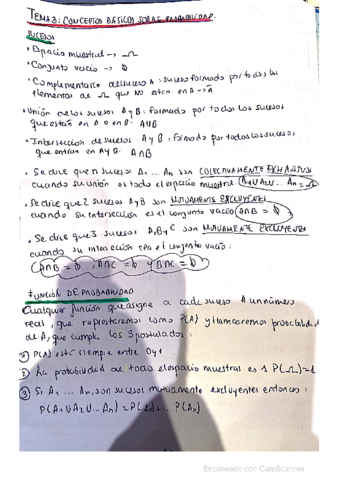 TEMA 3: CONCEPTOS BÁSICOS SOBRE PROBABILIDAD.
SUCESOS
• Espacio muestral → Ω
• Conjunto vacío → Ø
• Complementario del suceso A: suceso formado por todos los
elementos de Ω que NO estén en A → Ā
• Unión de los sucesos A y B: formado por todos los sucesos
que están en A o en B. A∪B
• Intersección de sucesos A y B: formado por todos los sucesos
que están en A y B. A∩B
• Se dice que n sucesos A₁ ... An son COLECTIVAMENTE EXHAUSTIVOS
cuando su unión es todo el espacio muestral. A₁∪A₂∪... An = Ω
• Se dice que 2 sucesos A y B son MUTUAMENTE EXCLUYENTES
cuando su intersección es el conjunto vacío A∩B = Ø
• Se dice que 3 sucesos A, B y C son MUTUAMENTE EXCLUYENTES
cuando su intersección sea el conjunto vacío:
A∩B = Ø, A∩C = Ø y B∩C = Ø
FUNCIÓN DE PROBABILIDAD
Cualquier función que asigne a cada suceso A un número
real, que representaremos como P(A) y llamaremos probabilidad
de A, que cumpla los 3 postulados:
① P(A) está siempre entre 0 y 1
② La probabilidad de todo el espacio muestral es 1 P(Ω)=1
③ Si A₁ ... An, son sucesos mutuamente excluyentes entonces:
P(A₁∪A₂∪... An) = P(A₁)+... P(An)
Escaneado con CamScanner